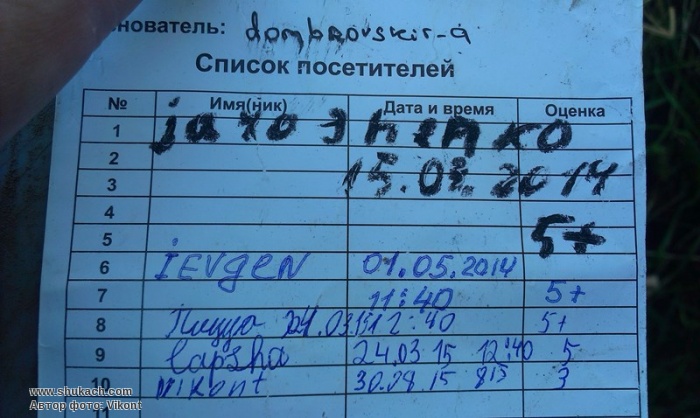 нователь: dombrovskir-a
Список посетителей
№ Имя(ник) Дата и время Оценка
1
2 15.03.2014
3
4
5 5+
6 IEvgEN 01.05.2014
7 11:40 5+
8 Пицца 24.03.15 12:40 5+
9 Lapsha 24.03 15 12:40 5
10 Vikont 30.08.15 815 3
www.shukach.com
Автор фото: Vikont